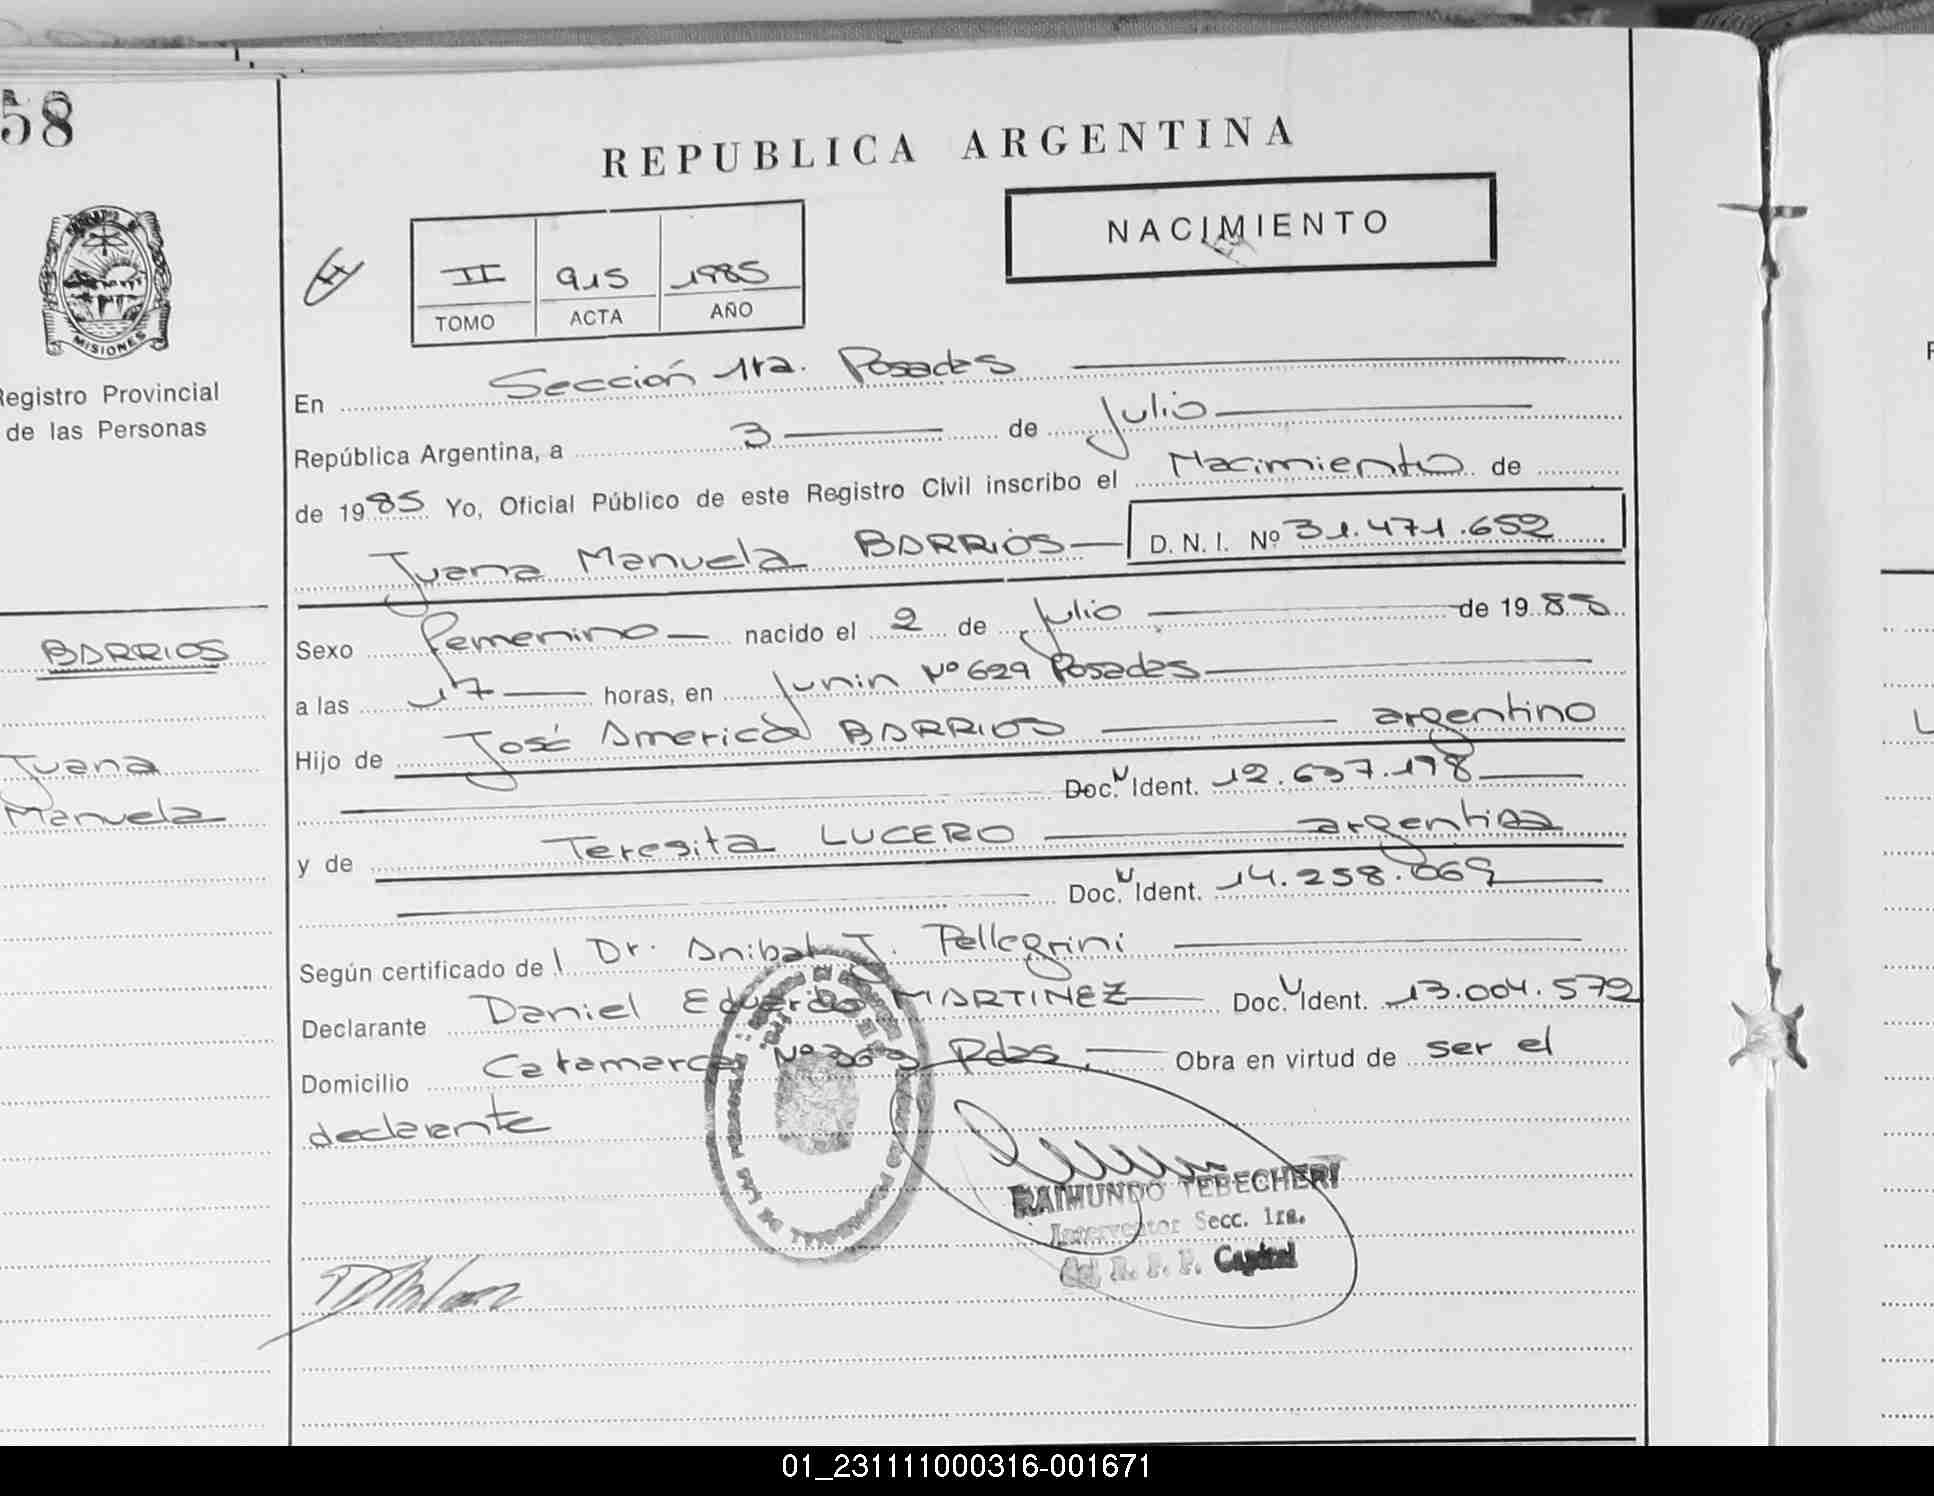 58
REPUBLICA ARGENTINA
NACIMIENTO
II 915 1985
TOMO ACTA AÑO
MISIONES
Registro Provincial
de las Personas
BARRIOS
Juana
Manuela
En Sección 1ra. Posadas
República Argentina, a 3 de Julio
de 1985 Yo, Oficial Público de este Registro Civil inscribo el Nacimiento de
Juana Manuela BARRIOS D. N. I. Nº 31.471.652
Sexo femenino nacido el 2 de Julio de 1985
a las 17 horas, en Junin Nº 629 Posadas
Hijo de José Americo BARRIOS argentino
Doc. Ident. 12.637.178
y de Teresita LUCERO argentina
Doc. Ident. 14.258.069
Según certificado de Dr. Anibal J. Pellegrini
Declarante Daniel Eduardo MARTINEZ Doc. Ident. 13.004.572
Domicilio Catamarca Nº Pdas. Obra en virtud de ser el
declarante
RAIMUNDO TEBECHERI
Interventor Secc. 1ra.
del R. P. P. Capital
01_231111000316-001671